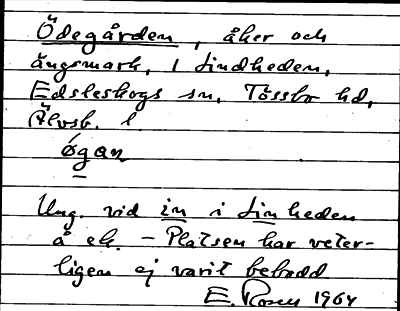 Ödegården, åker och
ängsmark, i Lindheden,
Edsleskogs sn, Tössbo hd,
Älvsb. l
øgan
Ung. vid in i Linheden
å ek. – Platsen har veter-
ligen ej varit bebodd
E. Rosen 1964